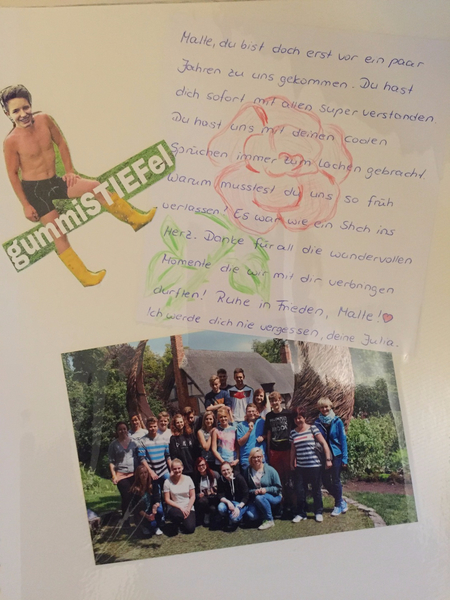 Malle, du bist doch erst vor ein paar
Jahren zu uns gekommen. Du hast
dich sofort mit allen super verstanden.
Du hast uns mit deinen coolen
Sprüchen immer zum Lachen gebracht
Warum musstest du uns so früh
verlassen! Es war wie ein Stich ins
Herz. Danke für all die wundervollen
Momente die wir mit dir verbringen
durften! Ruhe in Frieden, Malle!♥
Ich werde dich nie vergessen, deine Julia.
gummiSTIEFel